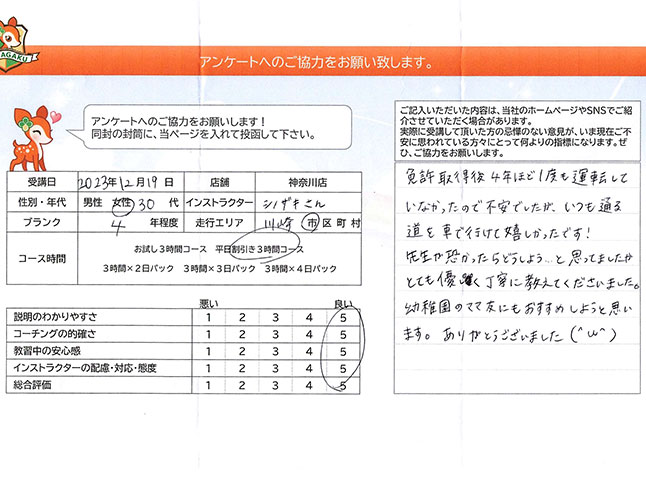 AGAKU
アンケートへのご協力をお願い致します。
アンケートへのご協力をお願いします！
同封の封筒に、当ページを入れて投函して下さい。
受講日 2023年12月19日 店舗 神奈川店
性別・年代 男性 女性 30 代 インストラクター シノザキさん
ブランク 4 年程度 走行エリア 川崎 市区町村
コース時間 お試し3時間コース 平日割引き3時間コース
3時間×2日パック 3時間×3日パック 3時間×4日パック
悪い 良い
説明のわかりやすさ 1 2 3 4 5
コーチングの的確さ 1 2 3 4 5
教習中の安心感 1 2 3 4 5
インストラクターの配慮・対応・態度 1 2 3 4 5
総合評価 1 2 3 4 5
ご記入いただいた内容は、当社のホームページやSNSでご紹
介させていただく場合があります。
実際に受講して頂いた方の忌憚のない意見が、いま現在ご不
安に思われている方々にとって何よりの指標になります。ぜ
ひ、ご協力をお願いします。
免許取得後4年ほど1度も運転して
いなかったので不安でしたが、いつも通る
道を車で行けて嬉しかったです！
先生が恐かったらどうしよう…と思ってましたが
とても優しく丁寧に教えてくださいました。
幼稚園のママ友にもおすすめしようと思い
ます。ありがとうございました(^ω^)